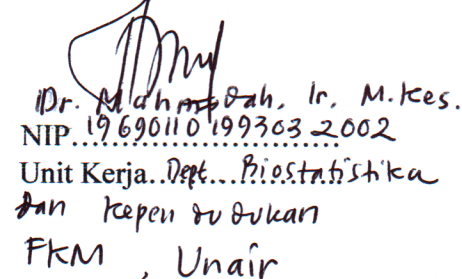 Dr. Mahmudah, Ir. M.Kes.
NIP. 19690110 199303 2002
Unit Kerja.. Dept. Biostatistika
dan Kependudukan
FKM, Unair